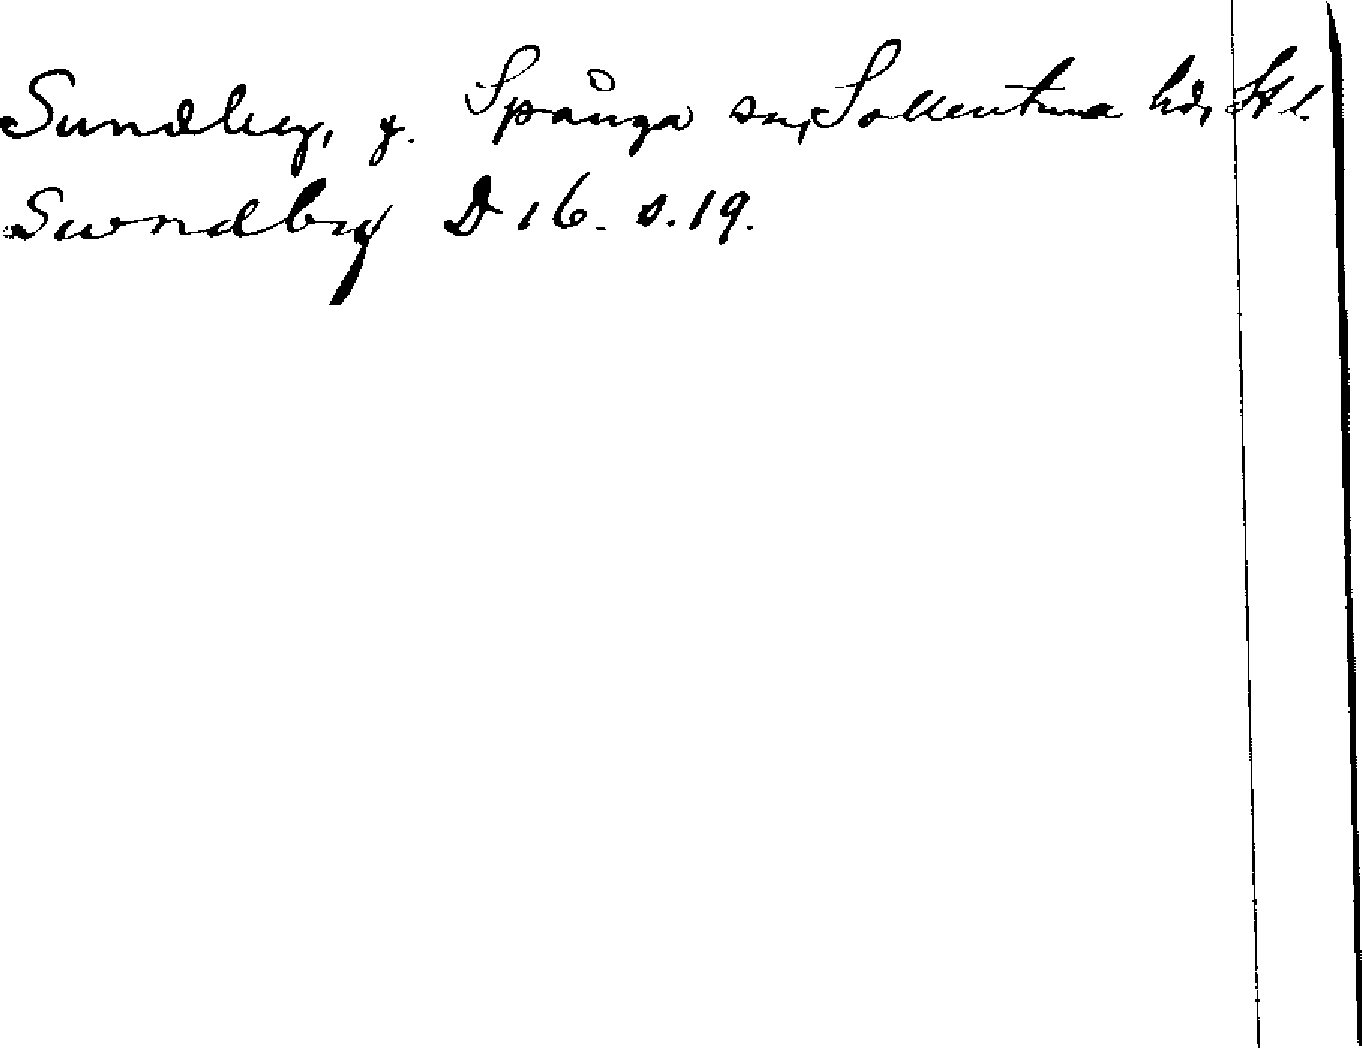 Sundby, g. Spånga sn, Sollentuna hd, Sthl.
Swndby D 16. s. 19.